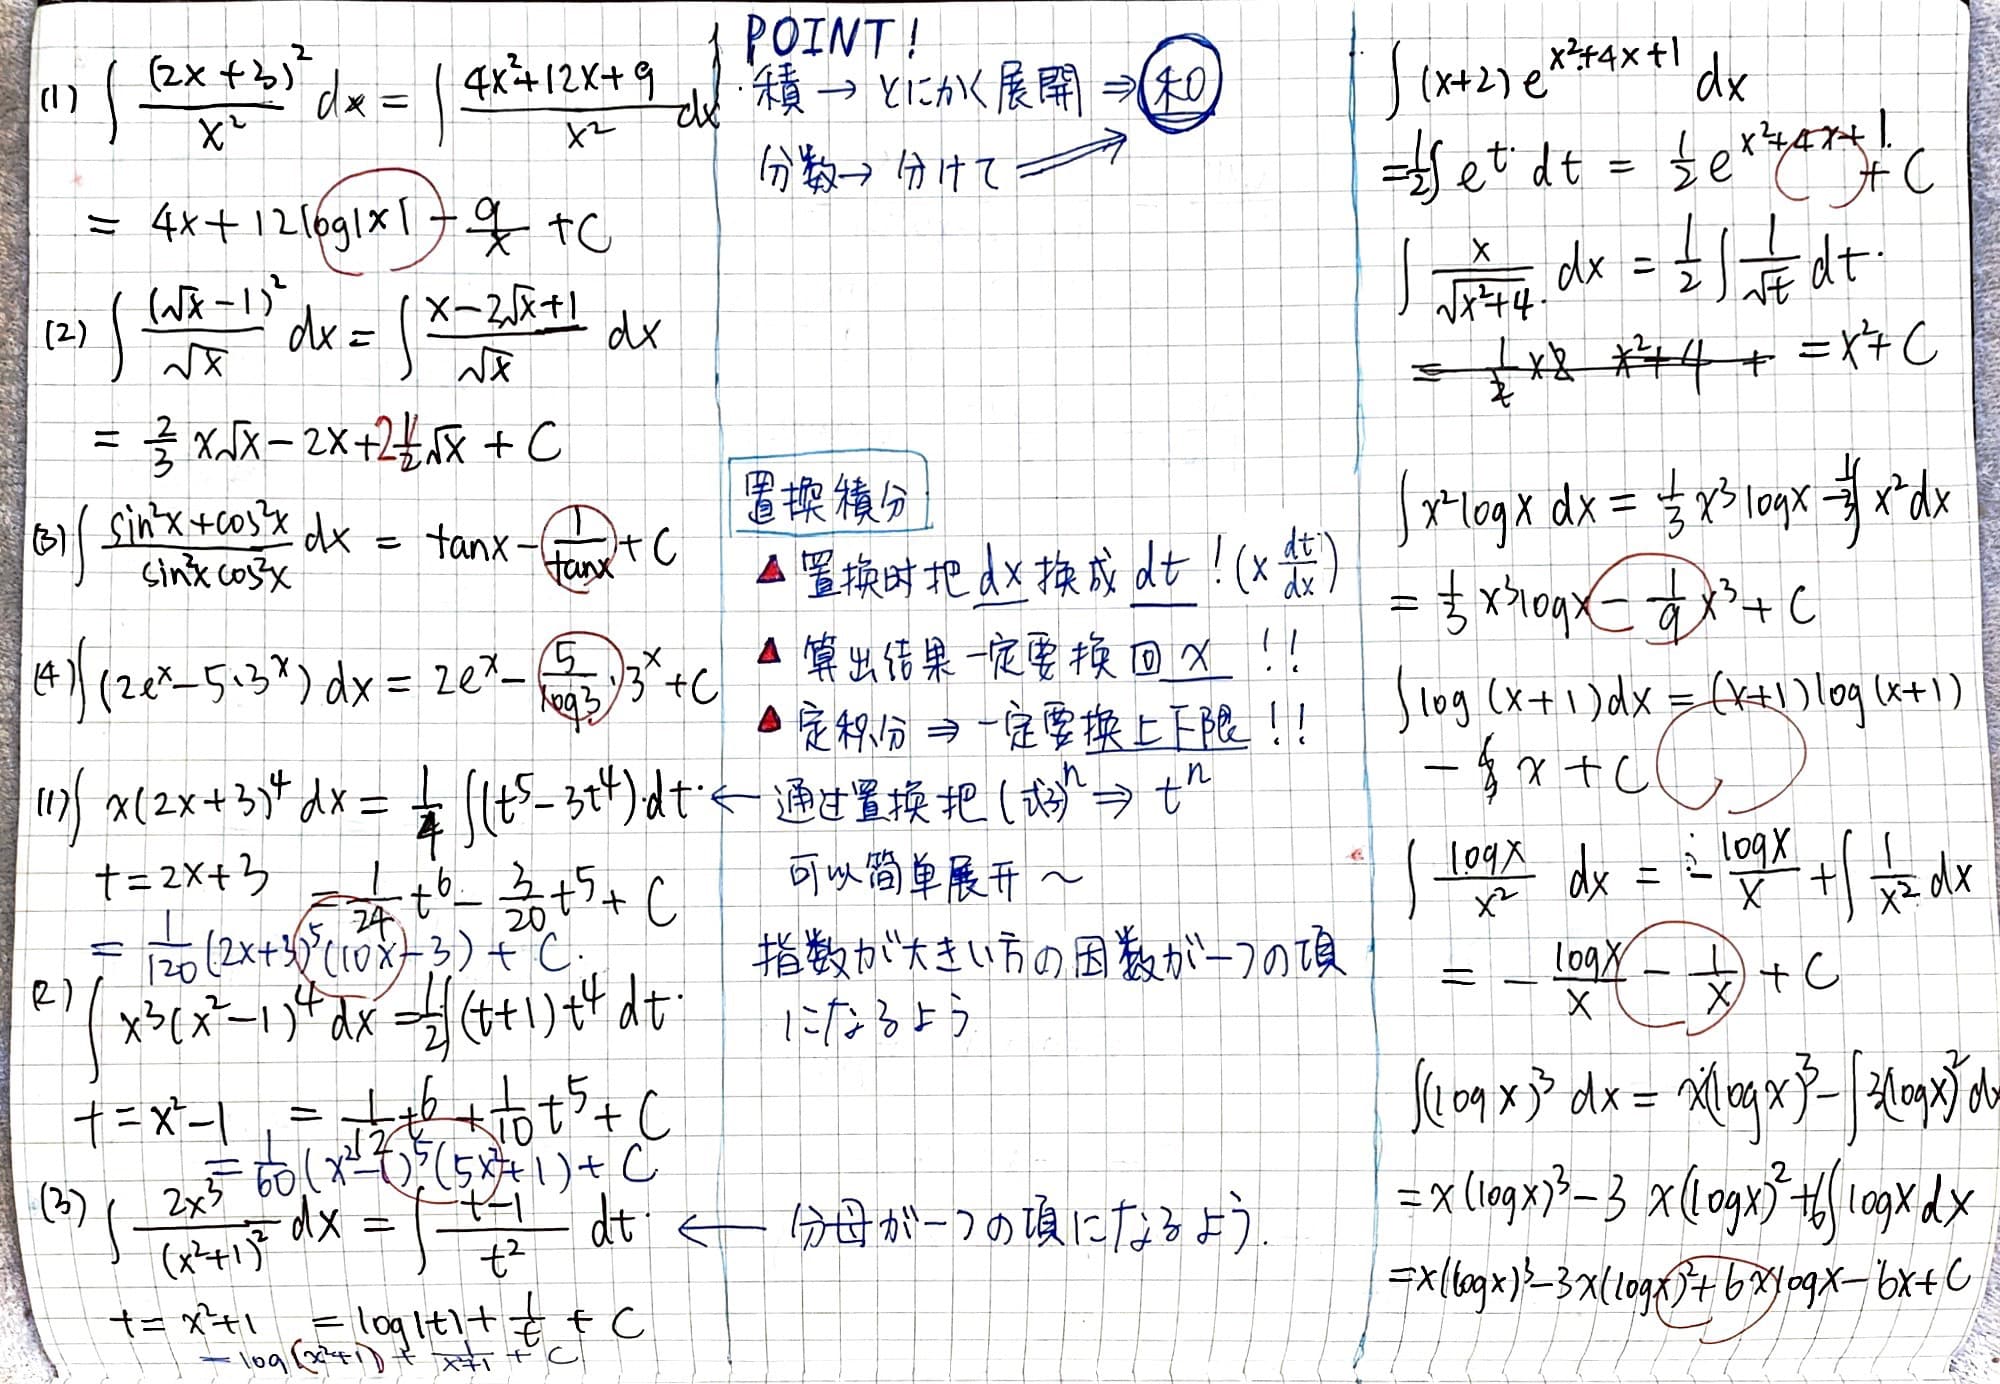 (1) ∫ (2x+3)²/x² dx = ∫ (4x²+12x+9)/x² dx
= 4x + 12log|x| - 9/x + C
(2) ∫ (√x-1)²/√x dx = ∫ (x-2√x+1)/√x dx
= 2/3 x√x - 2x + 2√x + C
(3) ∫ (sin²x+cos²x)/(sin²x cos²x) dx = tanx - 1/tanx + C
(4) ∫ (2eˣ-5·3ˣ) dx = 2eˣ - 5/log3 · 3ˣ + C
(1) ∫ x(2x+3)⁴ dx = 1/4 ∫(t⁵-3t⁴)dt
t=2x+3 = 1/24 t⁶ - 3/20 t⁵ + C
= 1/120 (2x+3)⁵(10x-3) + C.
(2) ∫ x³(x²-1)⁴ dx = 1/2 ∫(t+1)t⁴ dt
t=x²-1 = 1/12 t⁶ + 1/10 t⁵ + C
= 1/60 (x²-1)⁵(5x²+1) + C
(3) ∫ 2x³/(x²+1)² dx = ∫ (t-1)/t² dt
t=x²+1 = log|t| + 1/t + C
= log(x²+1) + 1/(x²+1) + C
POINT!
·積→とにかく展開⇒和
分数→分けて
置換積分
▲置換时把dx换成dt!(x dt/dx)
▲算出结果一定要换回x!!
▲定积分⇒一定要换上下限!!
←通过置換把(式)ⁿ⇒tⁿ
可以简单展开~
指数が大きい方の因数が一つの項
になるよう
←分母が一つの項になるよう.
∫(x+2)e^(x²+4x+1) dx
= 1/2 ∫eᵗ dt = 1/2 e^(x²+4x+1) + C
∫ x/√(x²+4) dx = 1/2 ∫ 1/√t dt
= 1/2 x2 x²+4 + = x²+C
∫x²logx dx = 1/3 x³logx - 1/3 ∫x²dx
= 1/3 x³logx - 1/9 x³ + C
∫log(x+1)dx = (x+1)log(x+1)
- x + C
∫ logx/x² dx = - logx/x + ∫ 1/x² dx
= - logx/x - 1/x + C
∫(logx)³ dx = x(logx)³ - ∫3(logx)²dx
= x(logx)³ - 3x(logx)² + 6∫logx dx
= x(logx)³ - 3x(logx)² + 6xlogx - 6x + C